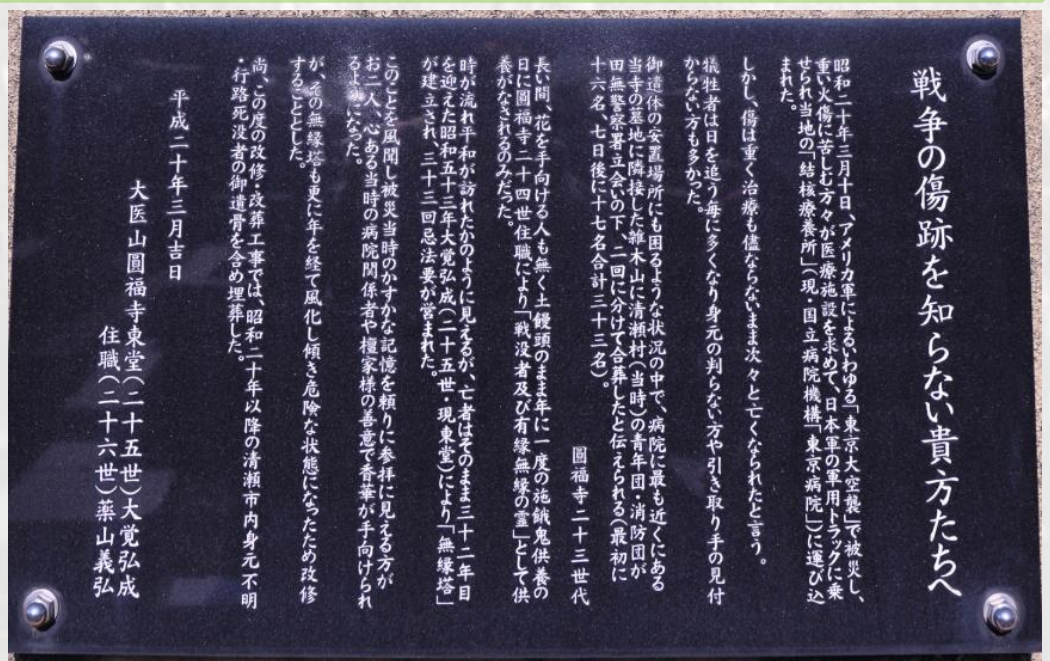 戦争の傷跡を知らない貴方たちへ
昭和二十年三月十日、アメリカ軍によるいわゆる「東京大空襲」で被災し、
重い火傷に苦しむ方々が医療施設を求めて、日本軍の軍用トラックに乗
せられ当地の「結核療養所」(現・国立病院機構「東京病院」)に運び込
まれた。
しかし、傷は重く治療も儘ならないまま次々と亡くなられたと言う。
犠牲者は日を追う毎に多くなり身元の判らない方や引き取り手の見付
からない方も多かった。
御遺体の安置場所にも困るような状況の中で、病院に最も近くにある
当寺の墓地に隣接した雑木山に清瀬村(当時)の青年団・消防団が
田無警察署立会いの下、二回に分けて合葬したと伝えられる(最初に
十六名、七日後に十七名合計三十三名)。
圓福寺二十三世代
長い間、花を手向ける人も無く土饅頭のまま年に一度の施餓鬼供養の
日に圓福寺二十四世住職により「戦没者及び有縁無縁の霊」として供
養がなされるのみだった。
時が流れ平和が訪れたかのように見えるが、亡者はそのまま三十二年目
を迎えた昭和五十三年大覚弘成(二十五世・現東堂)により「無縁塔」
が建立され、三十三回忌法要が営まれた。
このことを風聞し被災当時のかすかな記憶を頼りに参拝に見える方が
お二人、心ある当時の病院関係者や檀家様の善意で香華が手向けられ
るようになった。
が、その無縁塔も更に年を経て風化し傾き危険な状態になったため改修
することとした。
尚、この度の改修・改葬工事では、昭和二十年以降の清瀬市内身元不明
・行路死没者の御遺骨を含め埋葬した。
平成二十年三月吉日
大医山圓福寺東堂(二十五世)大覚弘成
住職(二十六世)薬山義弘